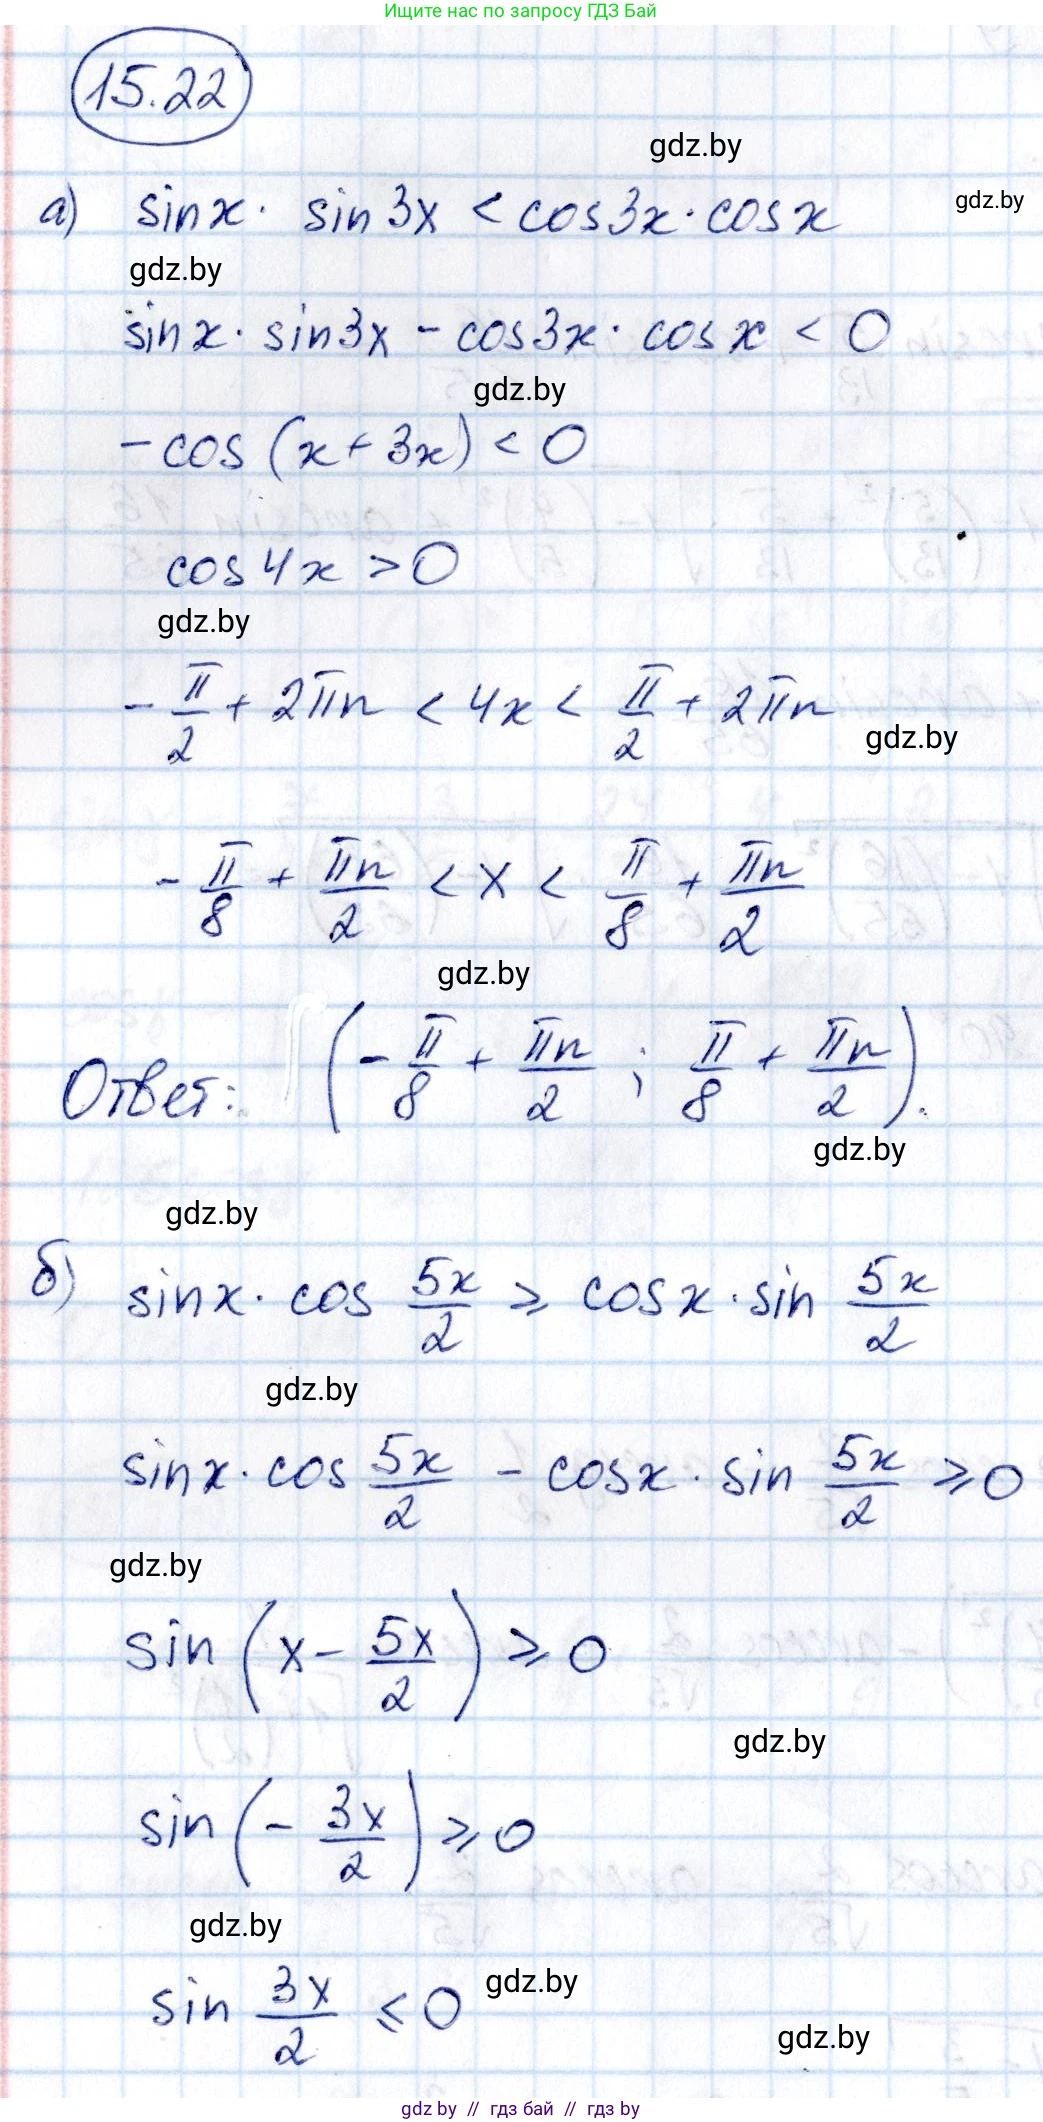 Ищите нас по запросу ГДЗ Бай
15.22
gdz.by
а) sin x · sin 3x < cos 3x · cos x
gdz.by
gdz.by
sin x · sin 3x - cos 3x · cos x < 0
gdz.by
- cos (x + 3x) < 0
cos 4x > 0
gdz.by
- π/2 + 2πn < 4x < π/2 + 2πn
gdz.by
- π/8 + πn/2 < x < π/8 + πn/2
gdz.by
Ответ: (- π/8 + πn/2 ; π/8 + πn/2).
gdz.by
gdz.by
б) sin x · cos 5x/2 ⩾ cos x · sin 5x/2
gdz.by
sin x · cos 5x/2 - cos x · sin 5x/2 ⩾ 0
gdz.by
sin (x - 5x/2) ⩾ 0
gdz.by
sin (- 3x/2) ⩾ 0
gdz.by
sin 3x/2 ⩽ 0
gdz.by
gdz.by
gdz.by // гдз бай // гдз by